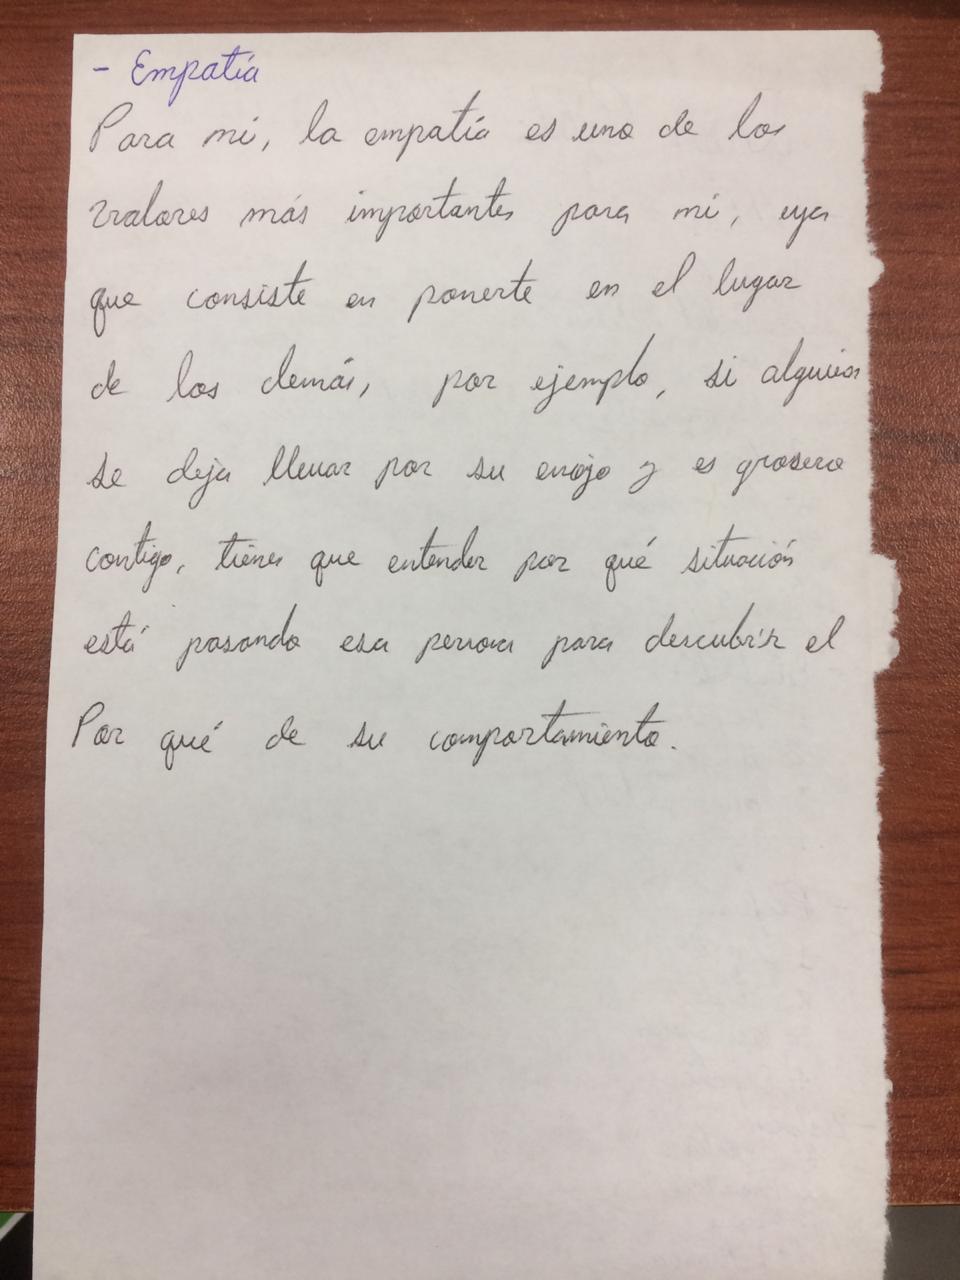 - Empatía
Para mí, la empatía es uno de los
valores más importantes para mí, ya
que consiste en ponerte en el lugar
de los demás, por ejemplo, si alguien
se deja llevar por su enojo y es grosero
contigo, tienes que entender por qué situación
está pasando esa persona para descubrir el
Por qué de su comportamiento.